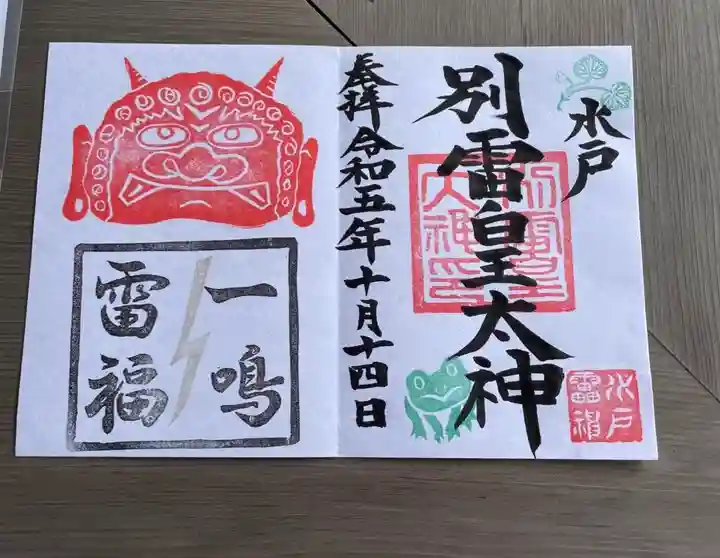 水戸
別雷皇太神
別雷皇
太神印
水戸
雷神
奉拝令和五年十月十四日
一鳴
雷福